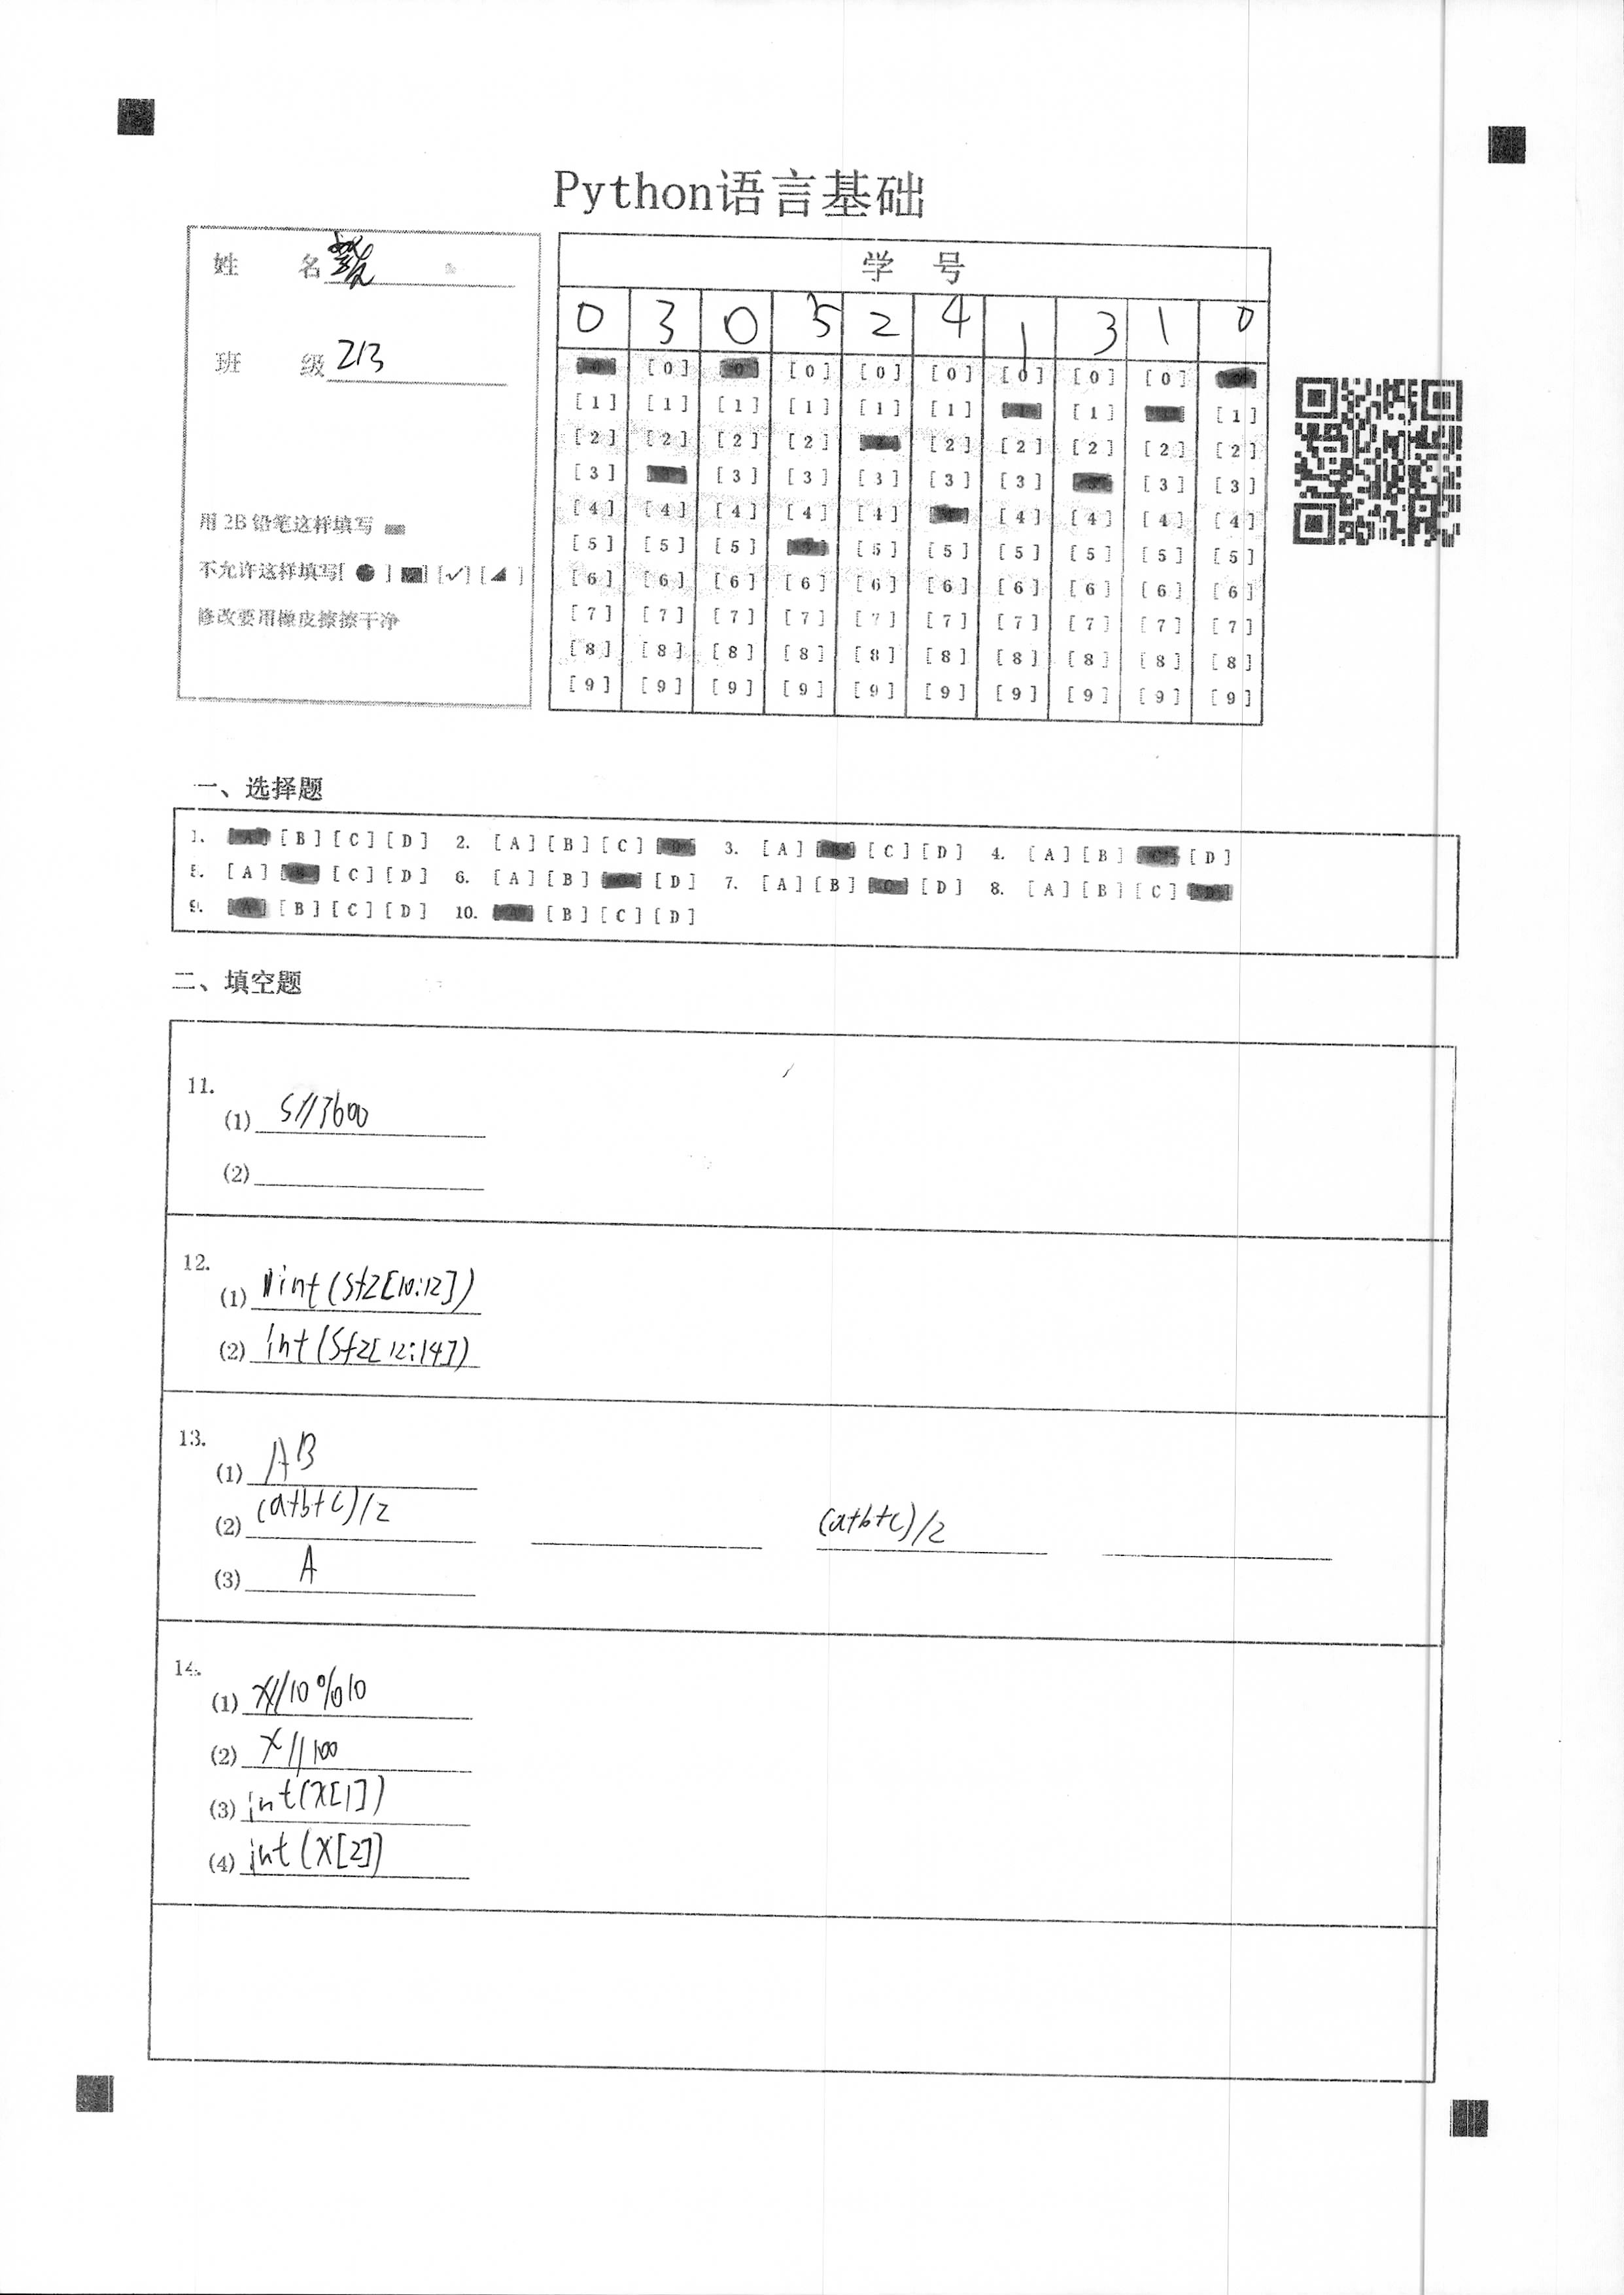 Python语言基础
姓 名
班 级 213
用 2B 铅笔这样填写
不允许这样填写[ ● ] [■] [✓] [◢ ]
修改要用橡皮擦擦干净
学 号
0 3 0 5 2 4 1 3 1 0
[0] [0] [0] [0] [0] [0] [0]
[1] [1] [1] [1] [1] [1] [1] [1]
[2] [2] [2] [2] [2] [2] [2] [2] [2]
[3] [3] [3] [3] [3] [3] [3] [3]
[4] [4] [4] [4] [4] [4] [4] [4] [4]
[5] [5] [5] [5] [5] [5] [5] [5] [5]
[6] [6] [6] [6] [6] [6] [6] [6] [6] [6]
[7] [7] [7] [7] [7] [7] [7] [7] [7] [7]
[8] [8] [8] [8] [8] [8] [8] [8] [8] [8]
[9] [9] [9] [9] [9] [9] [9] [9] [9] [9]
一、选择题
1. [A] [B] [C] [D] 2. [A] [B] [C] [D] 3. [A] [B] [C] [D] 4. [A] [B] [C] [D]
5. [A] [B] [C] [D] 6. [A] [B] [C] [D] 7. [A] [B] [C] [D] 8. [A] [B] [C] [D]
9. [A] [B] [C] [D] 10. [A] [B] [C] [D]
二、填空题
11.
(1) s//3600
(2)
12.
(1) int(Sfz[10:12])
(2) int(Sfz[12:14])
13.
(1) AB
(2) (a+b+c)/2 (a+b+c)/2
(3) A
14.
(1) x//10%10
(2) x//100
(3) int(x[1])
(4) int(x[2])